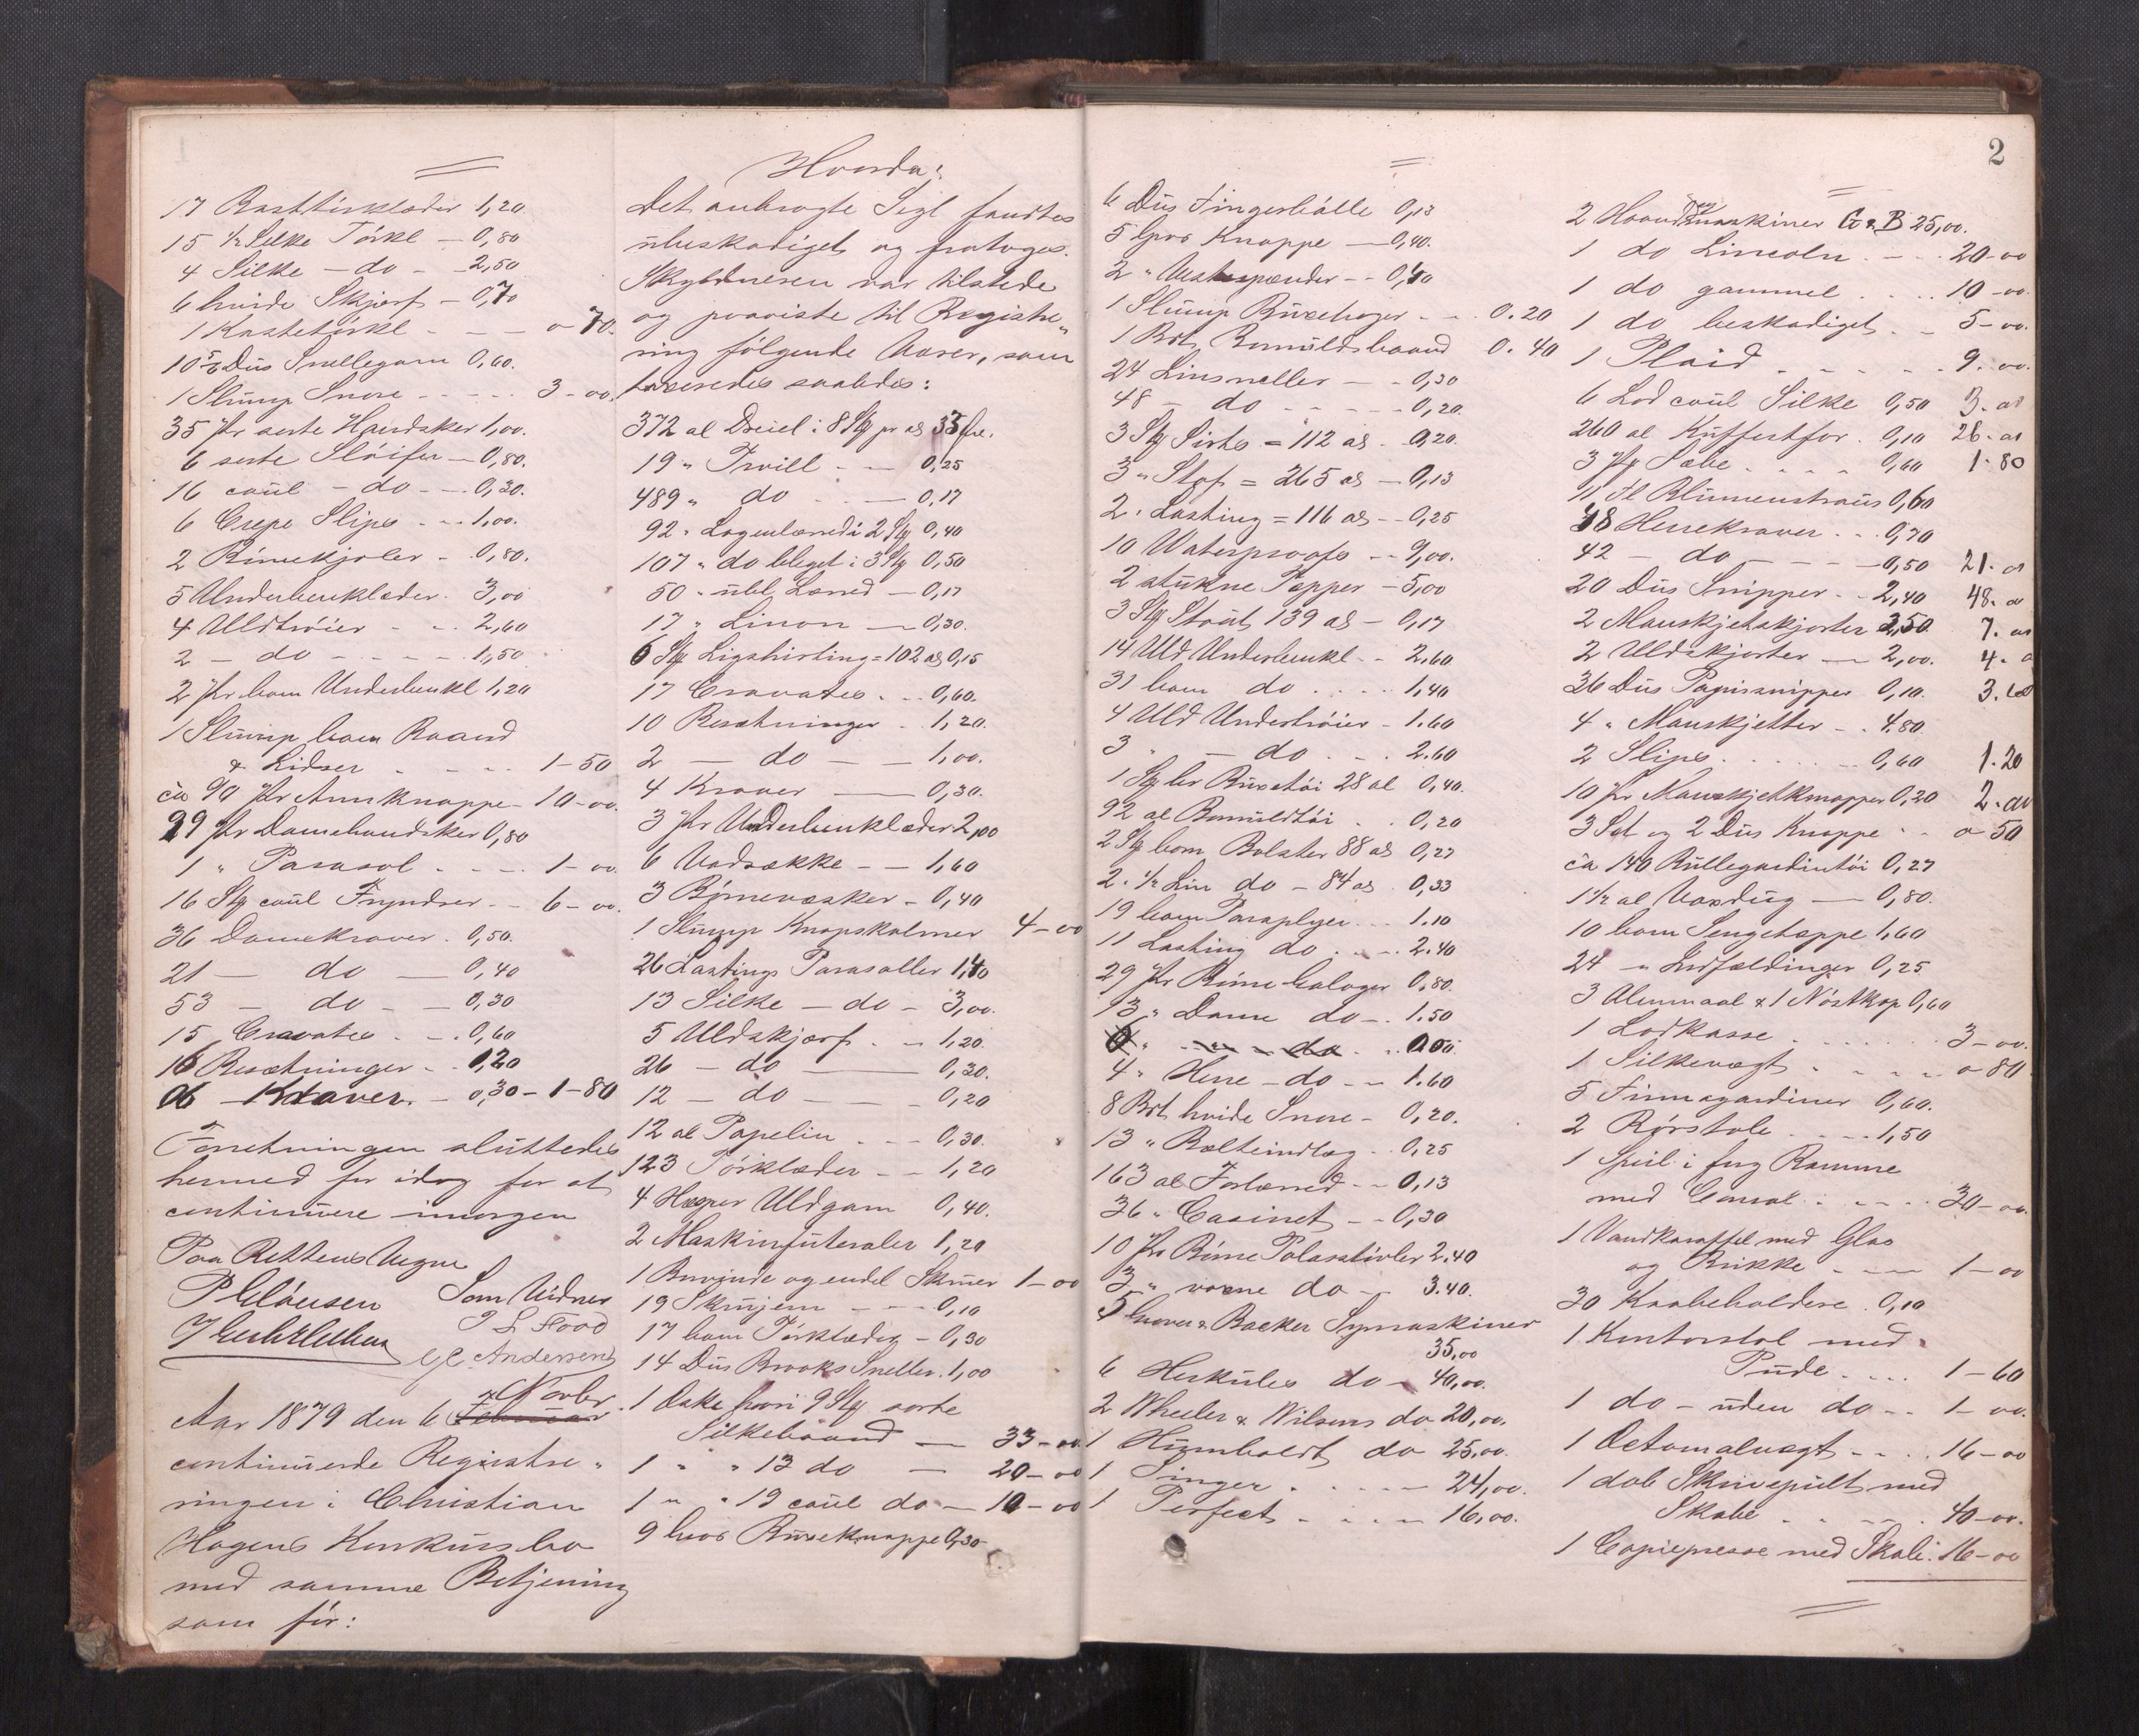 17 Rasttörklæder 1,20
15 1/2 Silke Törkl — 0,80
4 Silke — do — 2,50
6 hvide Skjerf — 0,70
1 Kastetörkl - - — o 70.
10 5/6 Düs Snellegarn 0,60.
1 Slump Snore - - - - - 3-00,
35 Pr sorte Handsker 1,00.
6 sorte Slöifer — 0,80.
16 coül — do - — 0,30.
6 Crepe Slips - .. 1,00.
2 Börnekjoler - .0,80.
5 Underbenklæder. 3,00
4 Uldtröier - .. 2,60
2 — do - - - - 1,50
2 Pr bom Underbenkl 1,20
1 Slump bom Baand
& Lidser - - - - 1-50
ca 90 Pr Armknappe - 10-00.
29 Pr Damehandsker 0,80
1 " Parasol . - - - 1-00
16 Stg coül Fryndser - - 6-00.
36 Damekraver . 0,50.
21 — do — 0,40
53 — do — 0,30
15 Cravater . - .0,60
16 Besætninger - . 1,20
06 — Kraver. — 0,30 - 1-80
Forretningen slüttedes
hermed for idag for at
continüere imorgen
Paa Rettens Vegne
P Claüsen Som Vidner
J L Flood
C C Andersen
Aar 1879 den 6 Februar Novbr
continüerede Registre„
ringen i Christian
Hagens Konkürsbo
med samme Betjening
som för:
Hvorda:
Det anbragte Segl fandtes
übeskadiget og fratoges.
Skyldneren var tilstede
og paaviste til Registre„
ring fölgende Varer, som
taxeredes saaledes:
372 al Dreiel i 8 Stg pr al 33 Øre.
19 " Tvill - — 0,25
489 " do - - — 0,17
92 " Lagenlærred i 2 Stg 0,40
107 " do bleget i 3 Stg 0,50
50 " übl Lærred — 0,17
17 " Linon — 0,30.
6 Stg Ligshirting = 102 al 0,15
17 Cravater . .. 0,60.
10 Besætninger - 1,20.
2 — do — — 1,00.
4 Kraver — 0,30.
3 Pr Underbenklæder 2,00
6 Vadsække - — 1,60
3 Börnevæsker - 0,40
1 Slump Knapskalmer 4-00
26 Lastings Parasoller 1,40
13 Silke — do - 3,00.
5 Uldskjærf . - 1,20.
26 — do — 0,30.
12 — do — 0,20
12 al Papelin . - - 0,30.
123 Törklæder - - 1,20
4 Hægver Uldgarn 0,40.
2 Maskinfüteraler 1,20
1 og endel Skruer 1-00
19 Skrujern — - - 0,10
17 bom Törklæder - 0,30
14 Dus Brooks Sneller. 1,00
1 Æske hvori 9 Stg sorte
Silkebaand — 33-00.
1 " " 13 do — 20-00
1 " " 19 coül do — 10-00
9 Gros Büxeknappe 0,30
6 Düs Fingerbölle 0,13
5 Gros Knappe — 0,40.
2 " Vestespænder - - 0,40
1 Slump Büxehager - .. 0.20
1 Brt. Bomüldsbaand 0.40
24 Linsneller — - 0,30
48 — do - - - - 0,20.
3 Stg Sirts = 112 al - 0,20.
3 " Stof = 265 al — 0,13
2 " Lasting = 116 al - - 0,25
10 Waterproofs - - 9,00.
2 stükne Tepper — 5,00
3 Stg Stoüt 139 al — 0,17
14 Uld Underbenkl. - 2.60
31 bom do . . . . 1,40
4 Uld Undertröier - 1.60
3 " — do . - . 2.60
1 Stg ler Büxetöi 28 al 0,40.
92 al Bomüldtöi . . 0,20
2 Stg bom Bolster 88 al 0,27
2 " 1/2 Lin do - 84 al . 0,33
19 bom Paraplyer . . . 1.10
11 Lasting do . . - 2.40
29 Pr Börne Galoger 0,80.
13 " Dame do - . 1.50
6 " — do . . .
4 " Herre — do - — 1.60
8 Brt hvide Snore - 0,20.
13 " Bælteindlæg . . 0,25
163 al Forlærred - - 0,13
36 " Casinet - - 0,30
10 Pr. Börne Polastövler 2.40
3 " voxne do - 3.40.
5 Grover & Backer Symaskiner
35,00
6 Herküles do - 40,00.
2 Wheeler & Wilsons do 20,00.
1 Hümboldt do 25,00.
1 Singer . . . — 24,00.
1 Perfect - . - — 16,00.
2
2 Haandsymaskiner G & B 25,00.
1 do Lincoln . - . 20-00
1 do gammel . . . . 10-00.
1 do beskadiget . - 5-00.
1 Plaid . - - - - . 9.00.
6 Lod coül Silke 0,50 3.00
260 al Küffertfor . 0,10 26.00
3 Pg Sæbe . . . . 0,60 1.80
11 Fl Blümenstraüs 0,60
48 Herrekraver . . . 0,70
42 — do — - - — 0,50 21.00
20 Düs Snipper - - 2,40 48.00
2 Manskjetskjorter 3,50. 7.00
2 Uldskjorter — 2,00. 4.0
36 Düs Papirsnipper 0,10. 3.60
4 " Manskjetter - . 4.80
2 Slips . . . . - . 0,60 1.20
10 Pr Manskjetknapper 0,20 2.00
3 Set og 2 Düs Knappe - - o 50
ca 140 Rüllegardintöi 0,27
1 1/2 al Voxdüg — 0,80.
10 bom Sengetæppe 1,60
24 " Indfældinger 0,25
3 Alenmaal & 1 Nöstkop 0,60
1 Lodkasse . . . . . . . 3-00.
1 Silkevægt . . . . - - o 80.
5 Finnegardiner 0,60.
2 Rörstole . . . . 1,50
1 Speil i forg Ramme
med Consol . . - - . . 30-00.
1 Vandkaraffel med Glas
og Brikke - - — 1-00
30 Kaabeholdere . 0,10
1 Kontorstol med
Püde . . . . 1-60
1 do — üden do - - 1-00.
1 Decimalvægt - - . . 16-00
1 dob Skrivepült med
Skabe . . - - - . 40-00.
1 Copiepresse med Skab. 16-00